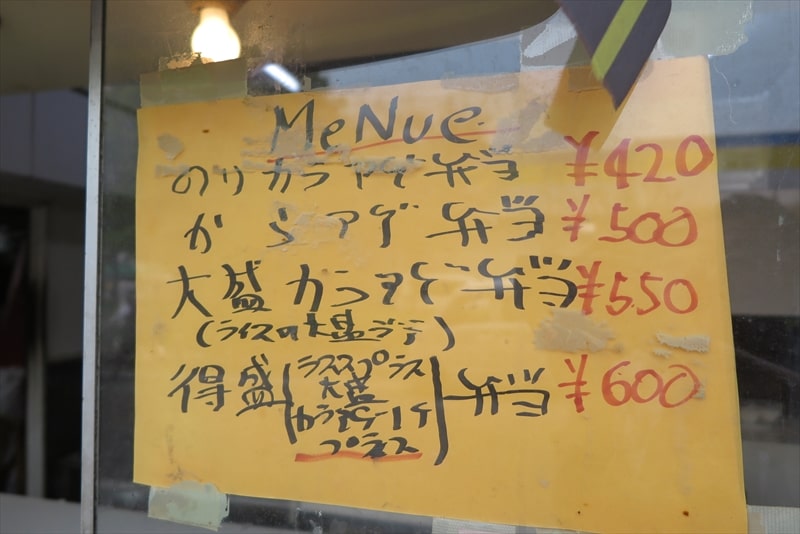 MeNue
のりカラアゲ弁当 ¥420
からアゲ弁当 ¥500
大盛カラアゲ弁当 ¥550
(ライスの大盛デラ)
得盛(ライスプラス大盛カラアゲ一ケプラス)弁当 ¥600